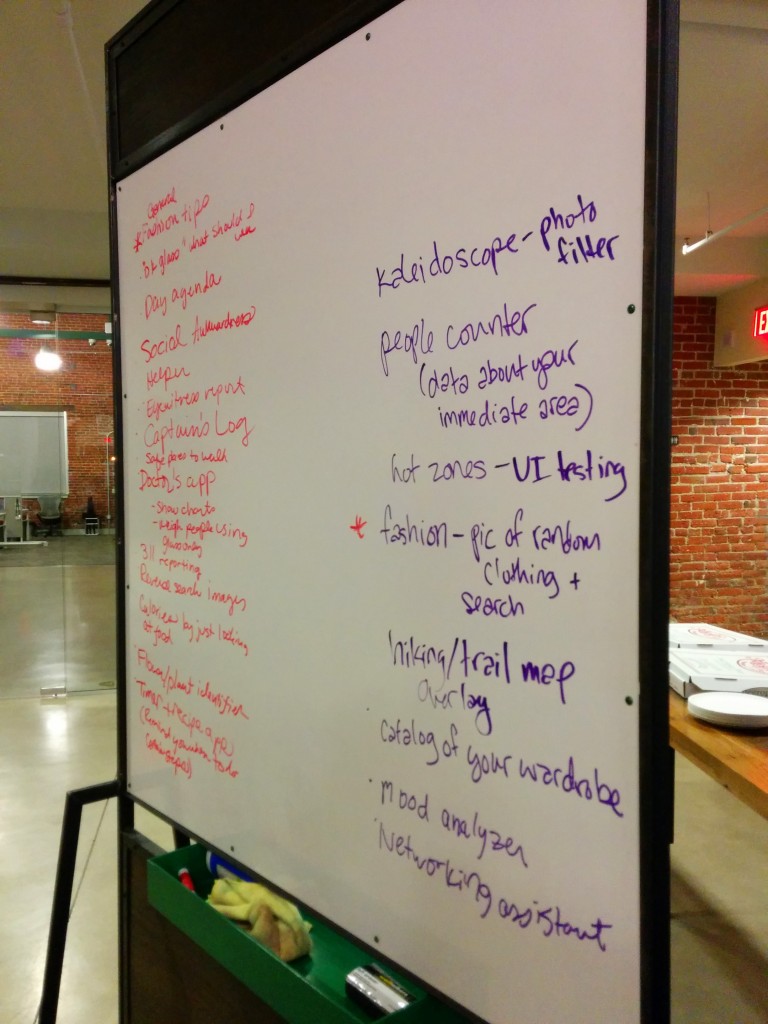 General
*Fashion tips
"ok glass" what should I
wear
Day agenda
Social Awkwardness
Helper
Eyewitness report
Captain's Log
Safe places to walk
Doctor's app
- show charts
- weigh people using
glass only
311 reporting
Reverse search images
Calories by just looking
at food
Flower/plant identifier
Timer + recipe app
(Remind you when to do
kaleidoscope - photo
filter
people counter
(data about your
immediate area)
hot zones - UI testing
* fashion - pic of random
clothing +
search
hiking/trail map
overlay
catalog of your wardrobe
mood analyzer
Networking assistant
EX